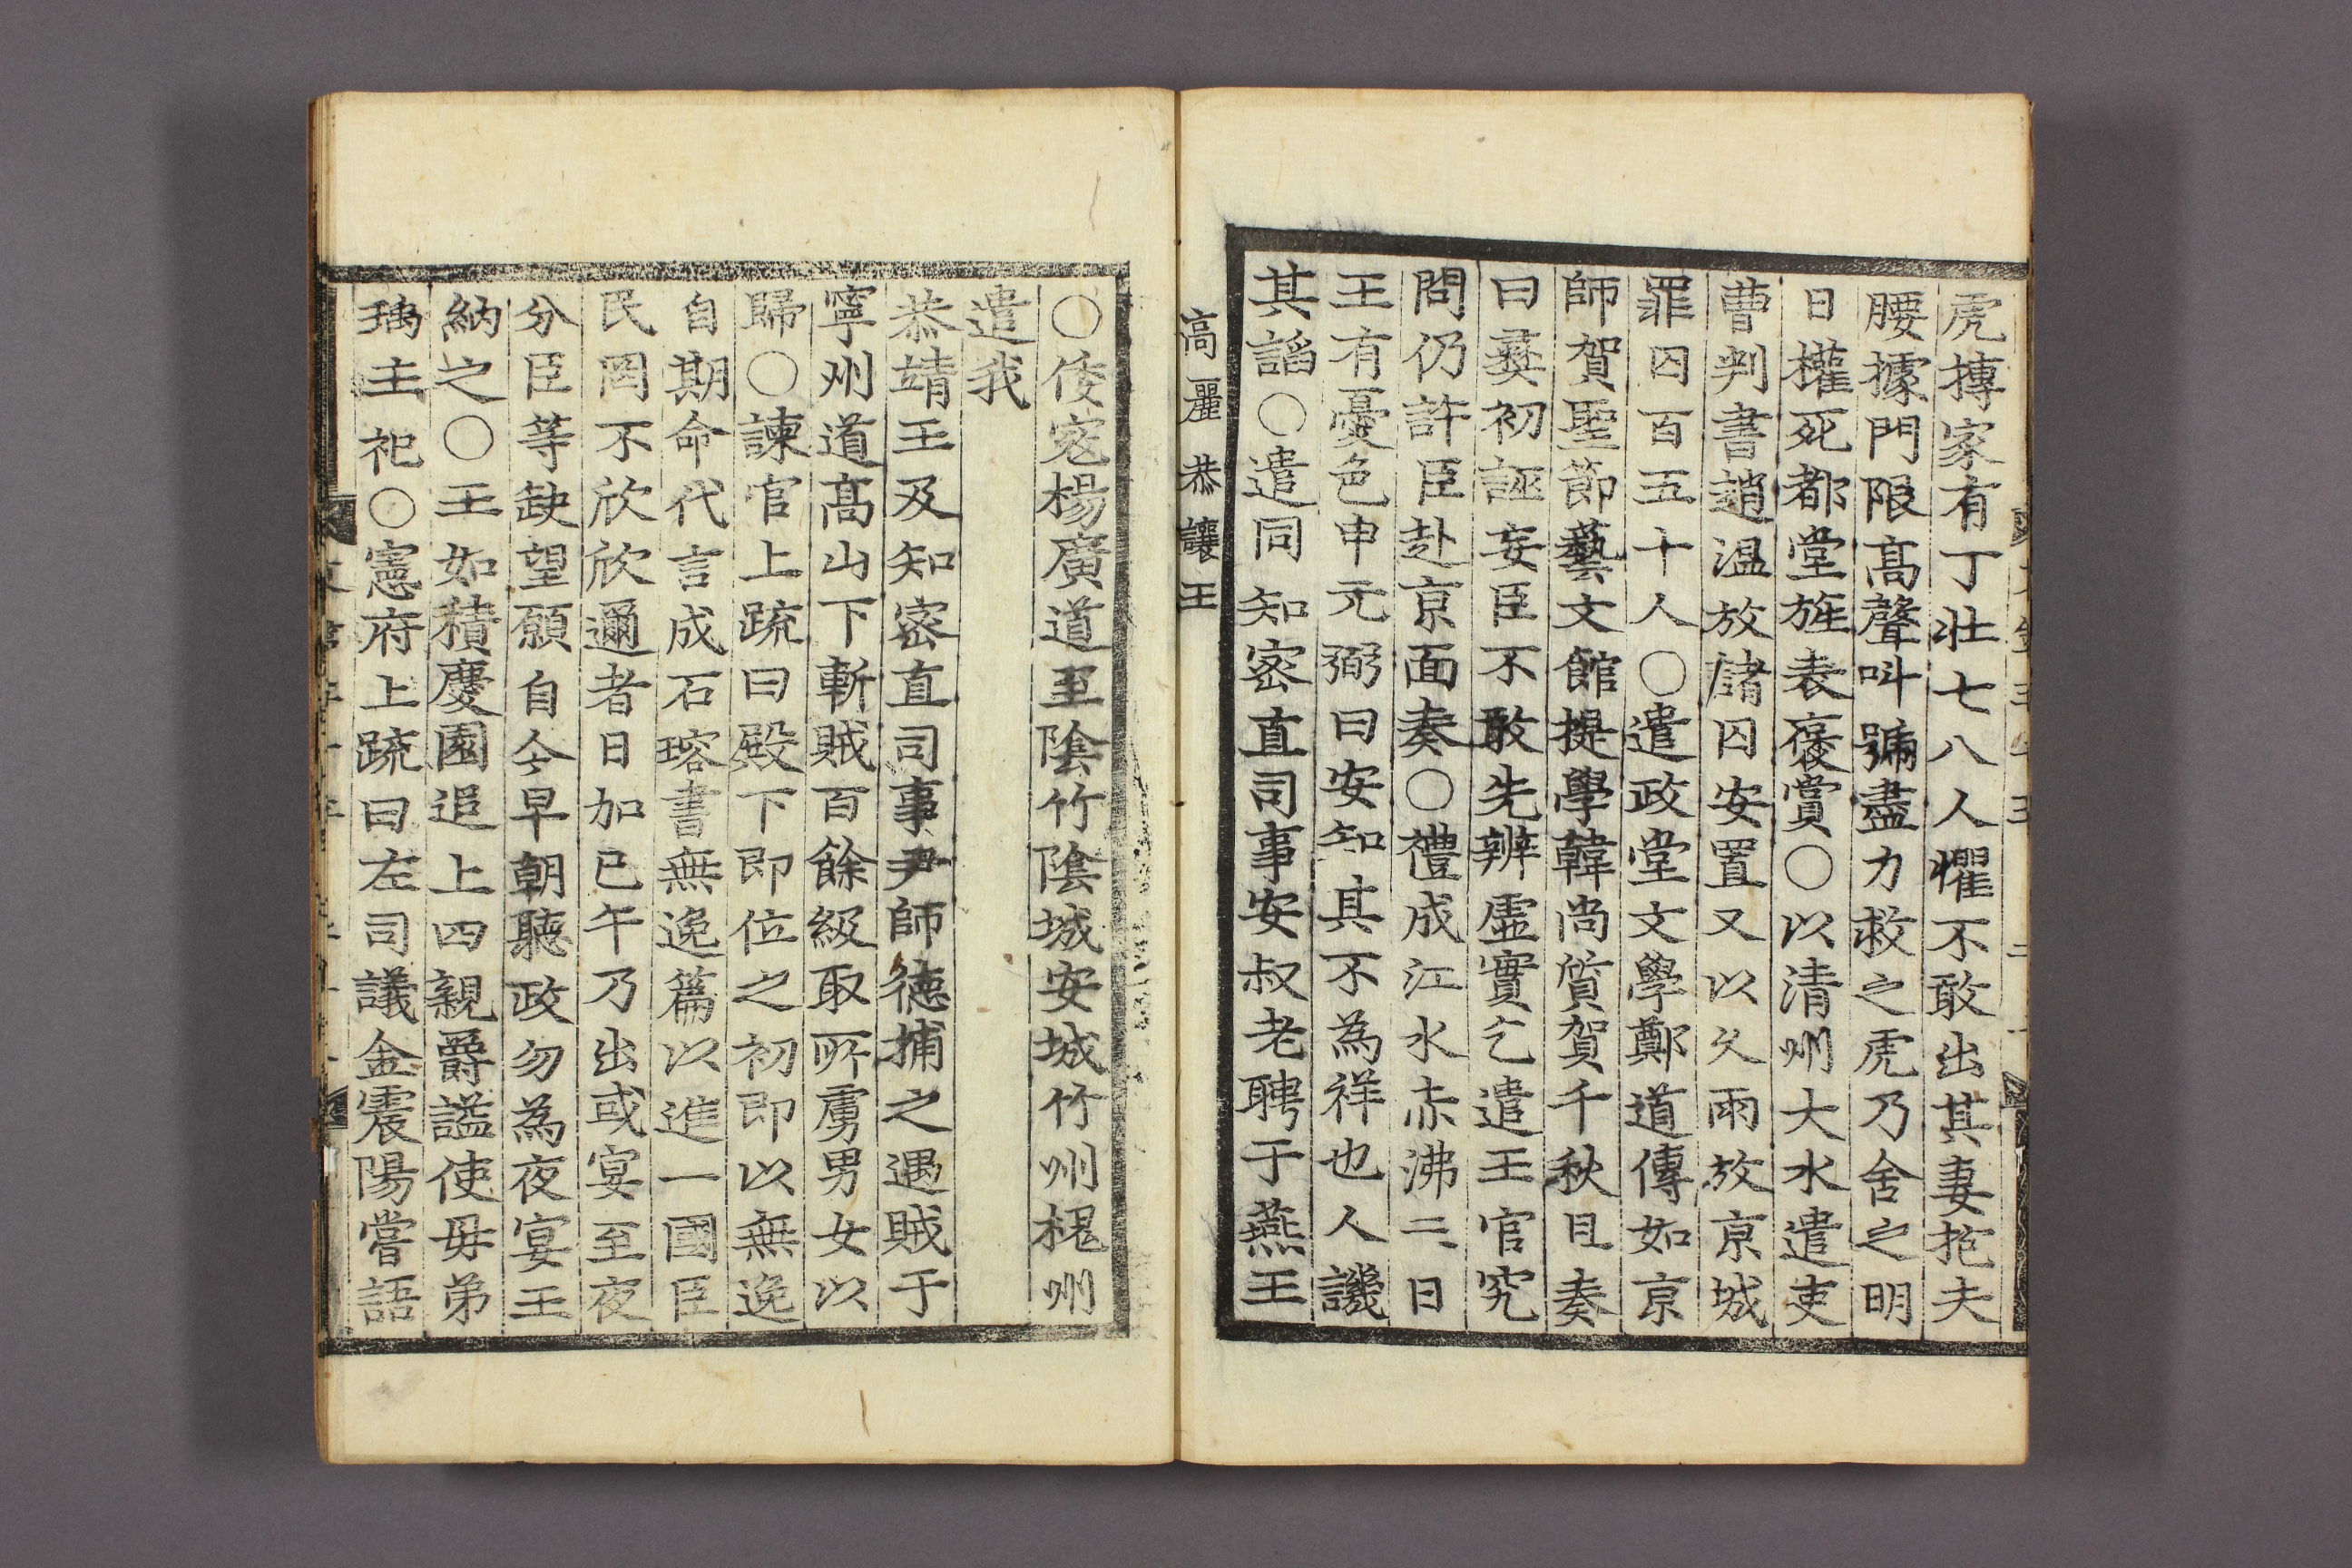 虎摶家有丁壯七八人懼不敢出其妻抱夫
腰據門限髙聲呌號盡力救之虎乃舍之明
日權死都堂旌表褒賞○以清州大水遣吏
曹判書趙温放諸囚安置又以久雨放京城
罪囚百五十人○遣政堂文學鄭道傳如京
師賀聖節藝文館提學韓尚質賀千秋且奏
曰彛初誣妄臣不敢先辨虛實乞遣王官究
問仍許臣赴京面奏○禮成江水赤沸二日
王有憂色申元弼曰安知其不為祥也人譏
其謟○遣同知密直司事安叔老聘于燕王
高麗恭讓王
○倭寇楊廣道至陰竹陰城安城竹州槐州
遣我
恭靖王及知密直司事尹師德捕之遇賊于
寧州道髙山下斬賊百餘級取所虜男女以
歸○諫官上䟽曰殿下即位之初即以無逸
自期命代言成石瑢書無逸篇以進一國臣
民罔不欣欣邇者日加巳午乃出或宴至夜
分臣等缺望願自今早朝聽政勿為夜宴王
納之○王如積慶園追上四親爵謚使毋弟
瑀主祀○憲府上䟽曰左司議金震陽嘗語